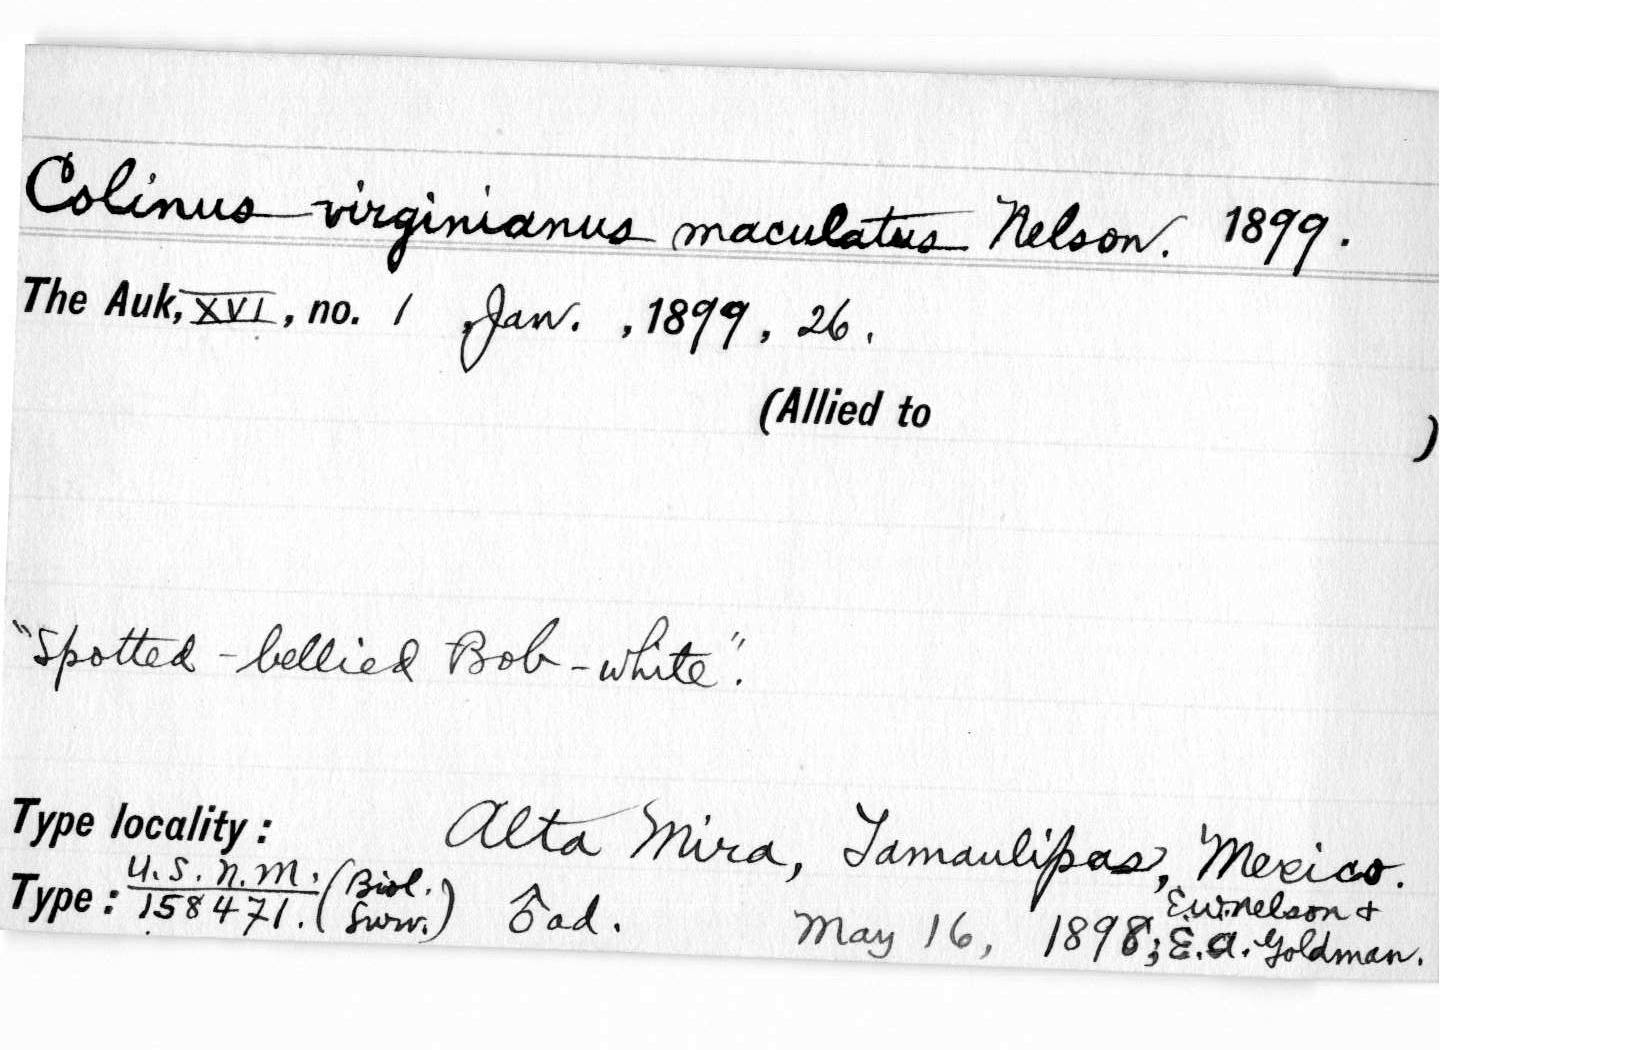 Colinus virginianus maculatus Nelson. 1899.
The Auk, XVI, no. 1, Jan., 1899, 26.
(Allied to )
"Spotted-bellied Bob-white".
Type locality: Alta Mira, Tamaulipas, Mexico.
Type: U.S.N.M. 158471. (Biol. Surv.) ♂ ad. May 16, 1898; E.W. Nelson & E.A. Goldman.